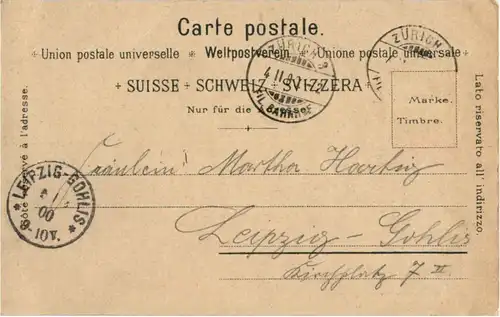 Carte postale.
Union postale universelle Weltpostverein Unione postale universale
SUISSE SCHWEIZ SVIZZERA
Nur für die Adresse.
Marke.
Timbre.
Côté réservé à l'adresse.
Lato riservato all'indirizzo.
ZÜRICH
FIL. BAHNHOF
ZÜRICH
FIL.
LEIPZIG-GOHLIS
00
Fräulein Martha Hartig
Leipzig-Gohlis
Kirchplatz 7 II